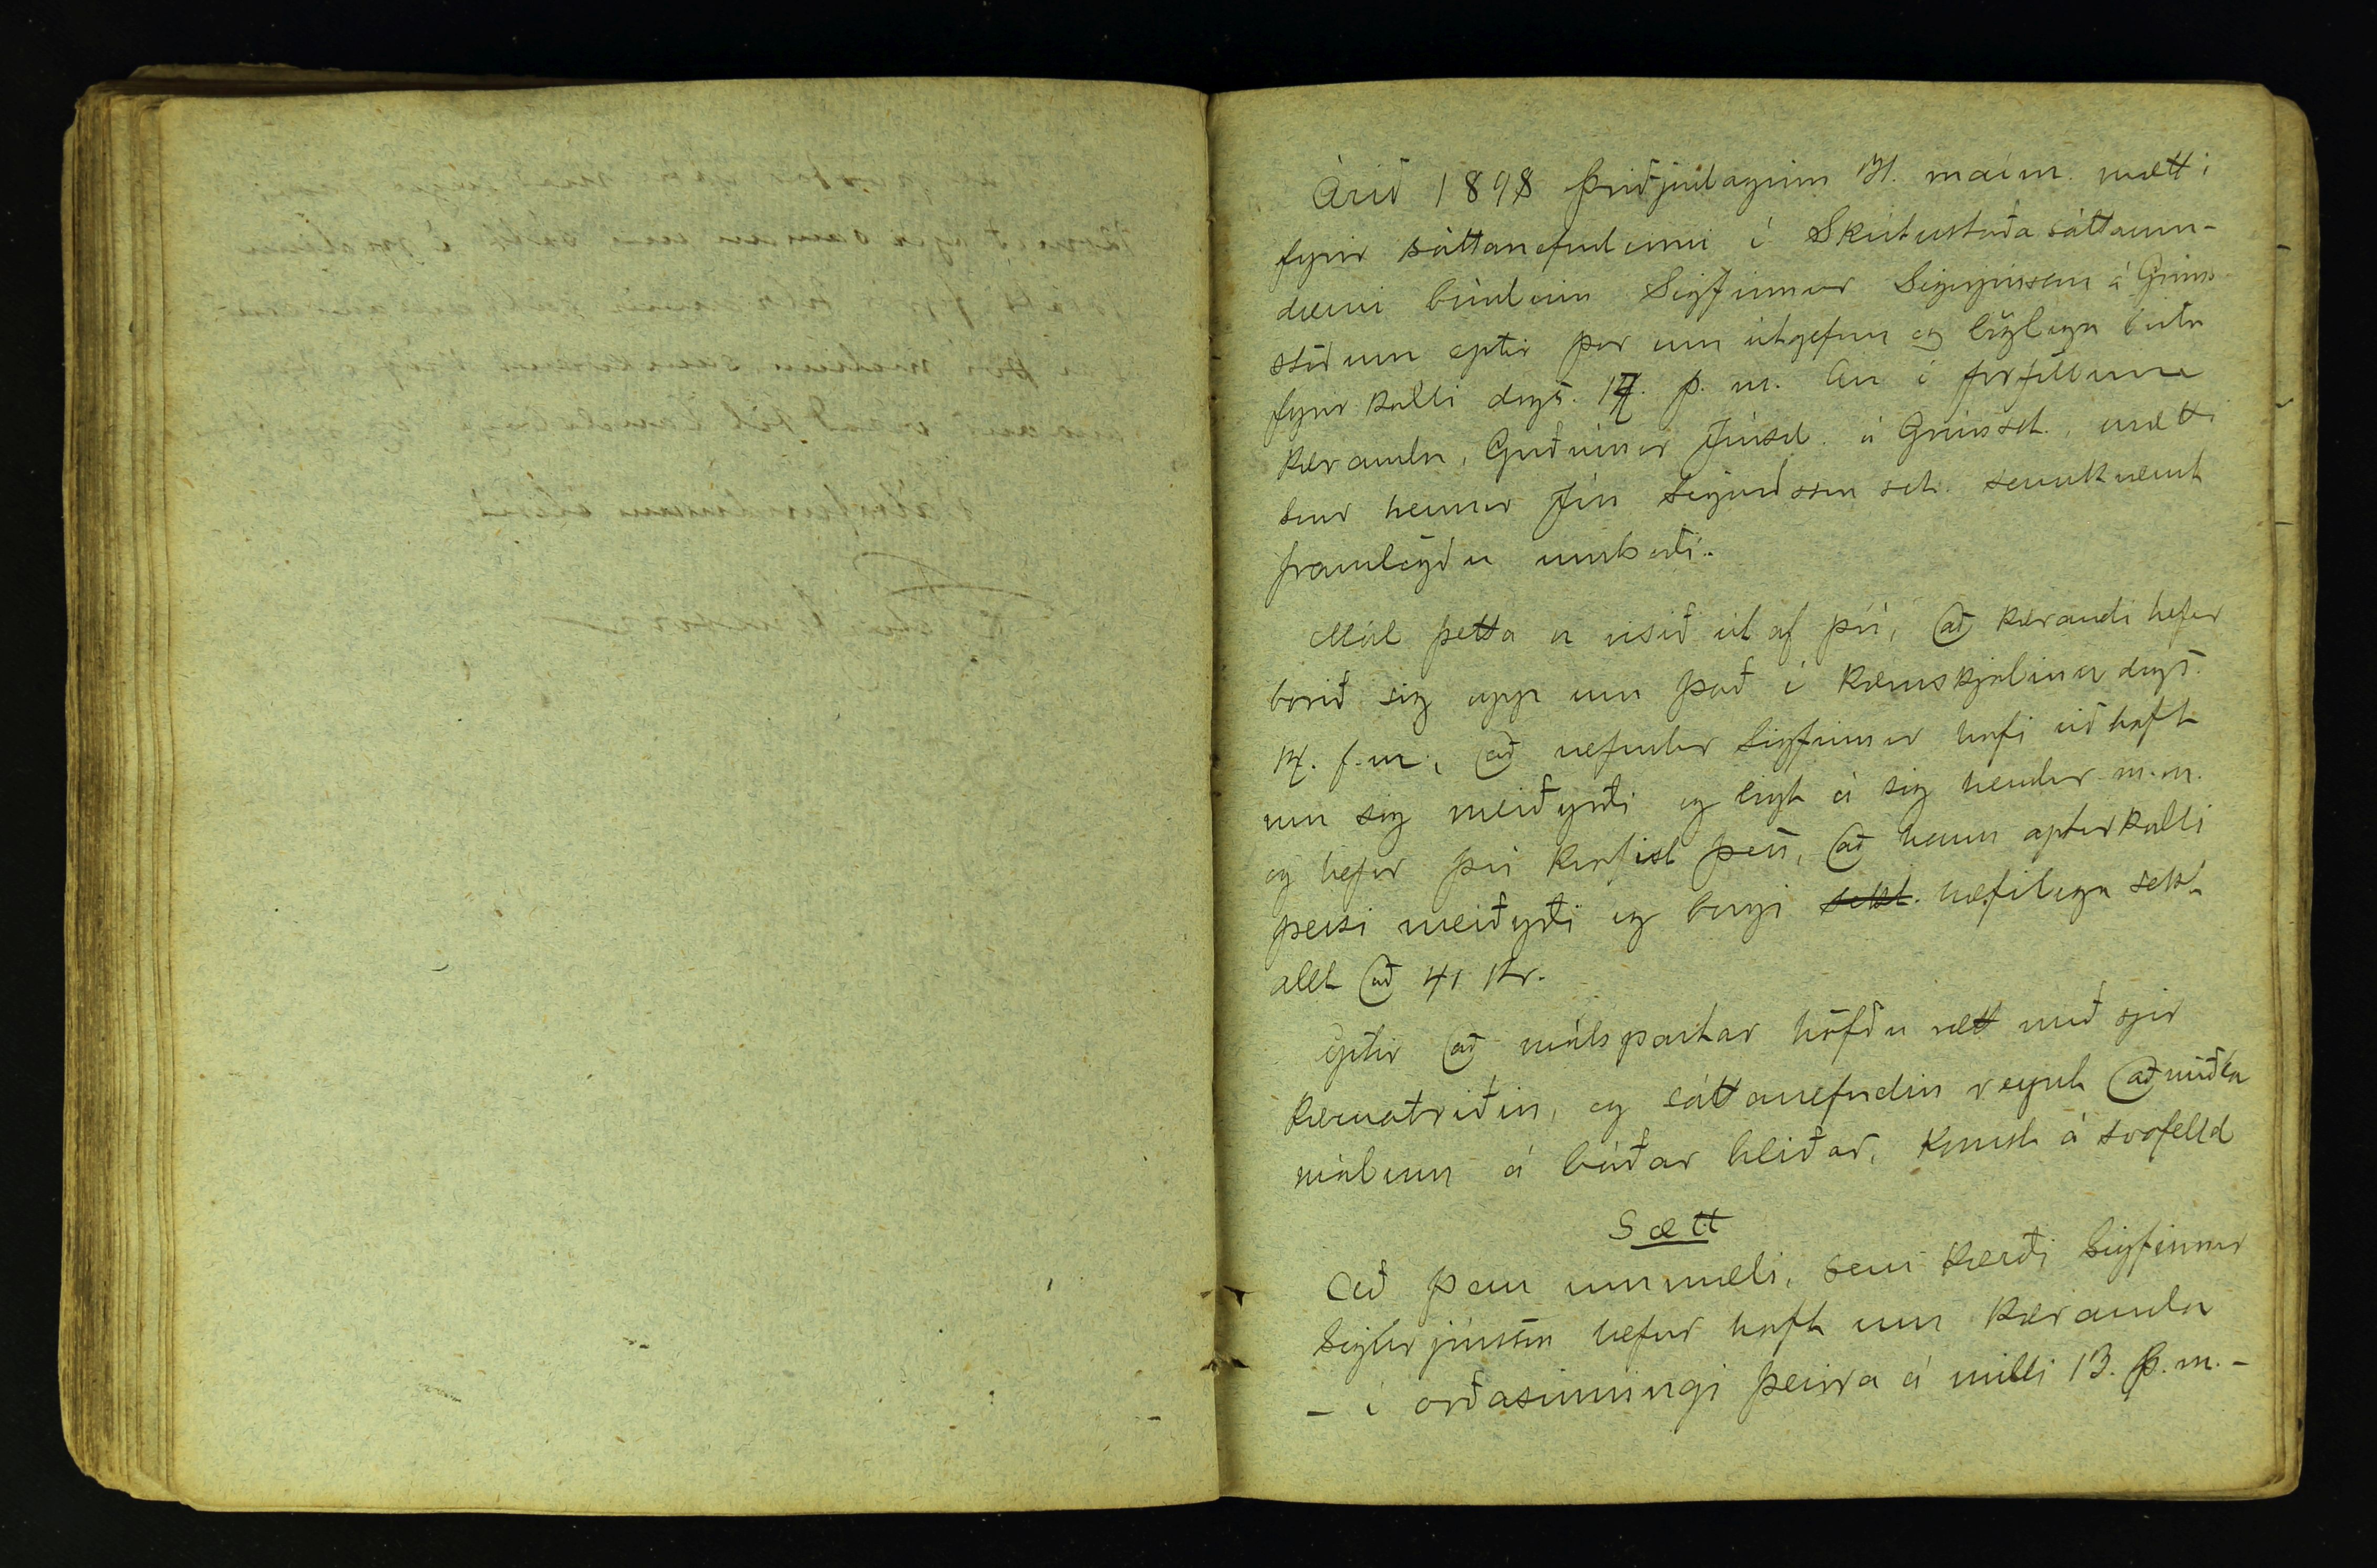 Árið 1898 þriðjudaginn 31. maím. mætti
fyrir sáttanefndinni í Skútustaða sáttaum-
dæmi bóndinn Sigfinnur Sigurjónsson á Gríms-
stöðum eptir þar um útgefnu og löglega birtu
fyrirkalli dags. 17. þ. m. En í forföllum
kæranda, Guðrúnar Jónsd. á Grímsst., mætti
sonur hennar Jón Sigurðsson sst. samkvæmt
framlögðu umboði.
Mál þetta er risið út af því, að kærandi hefur
borið sig upp um það í kæruskjalinu dags.
14. f.m., að nefndur Sigfinnur hafi viðhaft
um sig meiðyrði og lagt á sig hendur m.m.
og hefur því krafist þess, að hann apturkalli
þessi meiðyrði og borgi sekt hæfilega sekt
allt að 41 kr.
Eptir að málspartar höfðu rætt með sjer
kæruatriðin, og sáttanefndin reynt að miðla
málum á báðar hliðar, komst á svofelld
Sætt
Að þau ummæli, sem kærði Sigfinnur
Sigurjónsson hefur haft um kæranda
- í orðasinningi þeirra á milli 13. þ.m. -